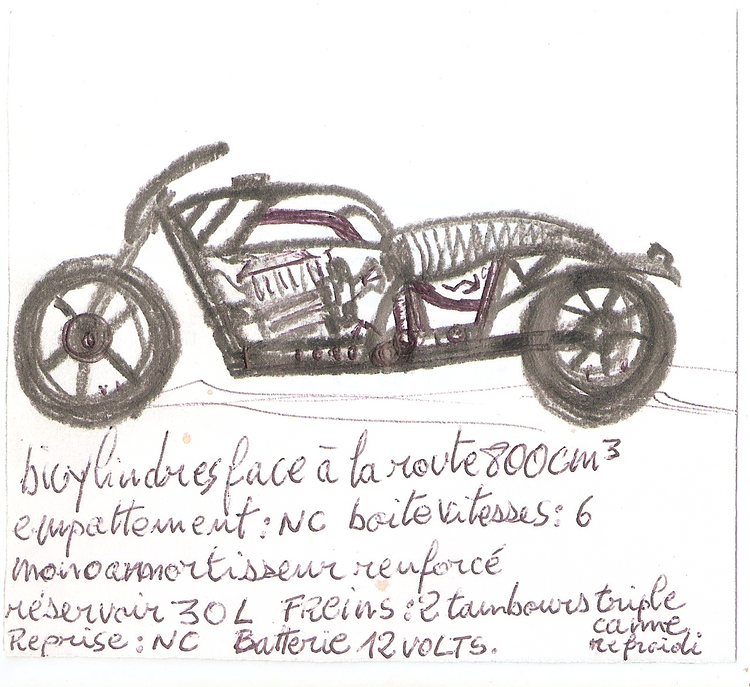 bicylindres face à la route 800cm³
empattement : NC boite vitesses : 6
monoammortisseur renforcé
réservoir 30L FREINS : 2 tambours triple
came
Reprise : NC Batterie 12 VOLTS. refroidi